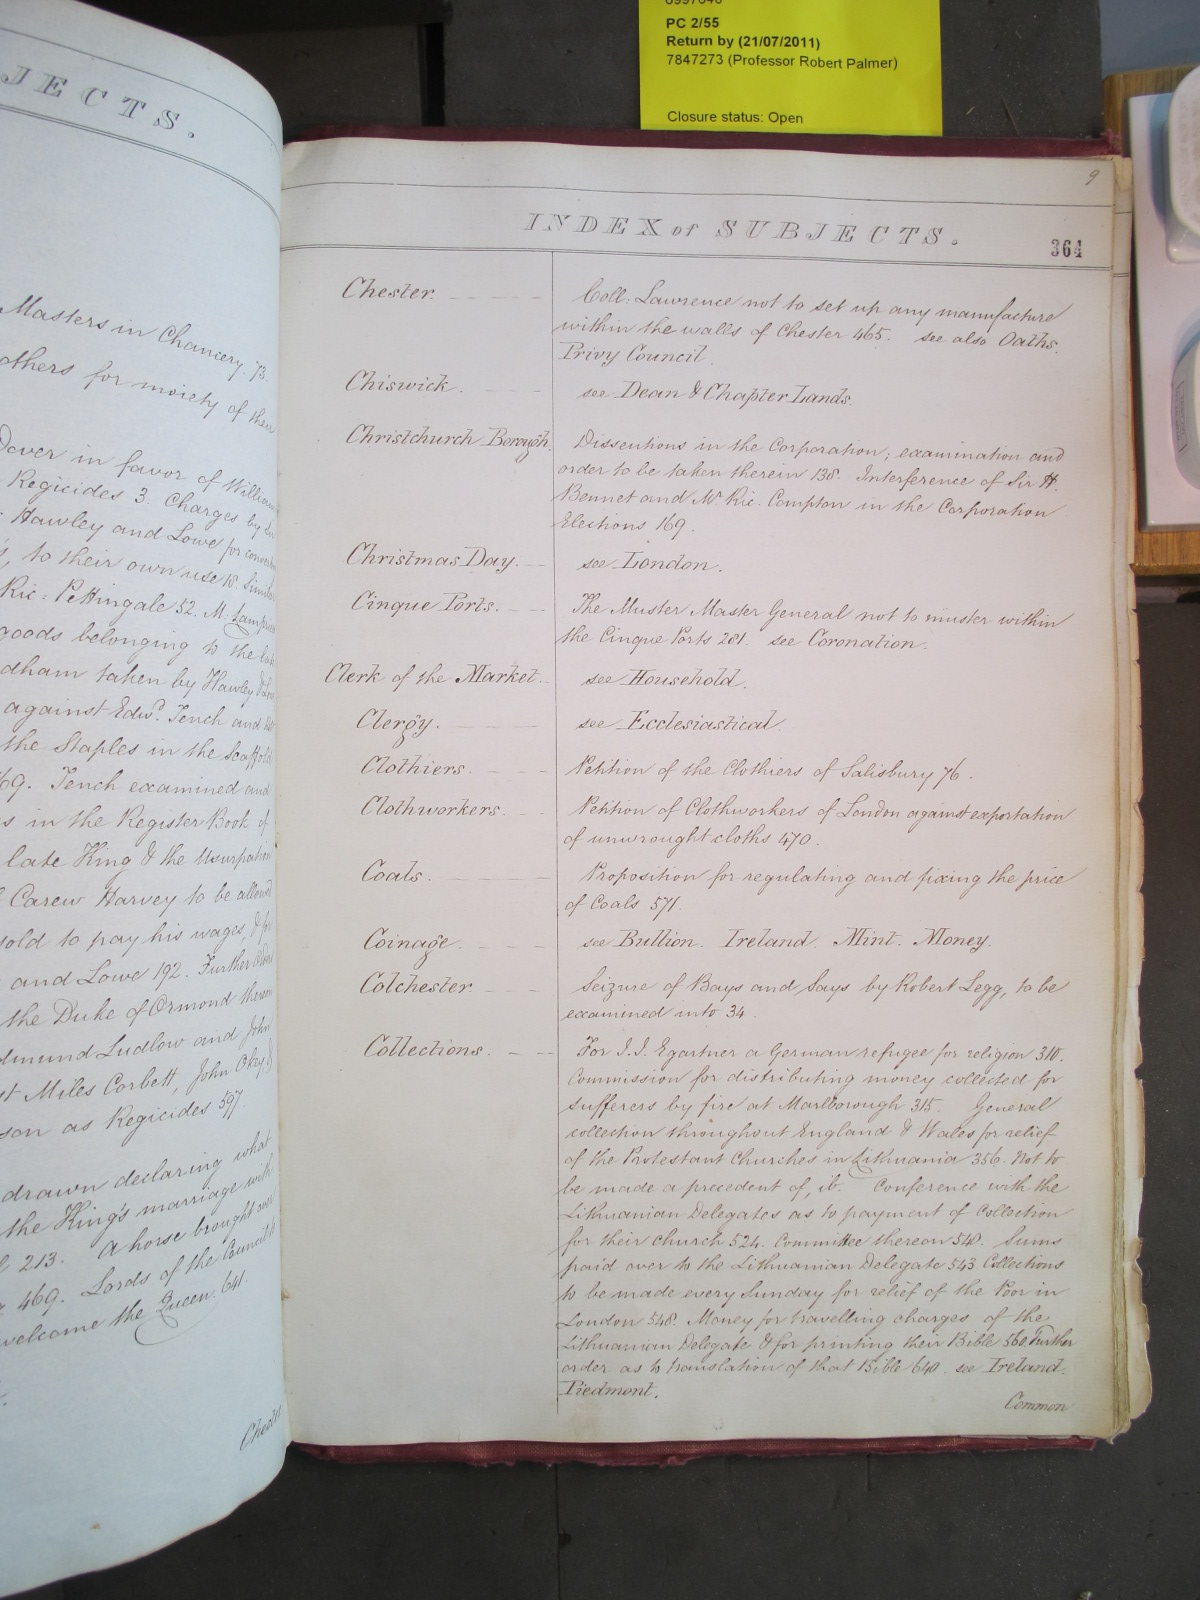 PC 2/55
Return by (21/07/2011)
7847273 (Professor Robert Palmer)
Closure status: Open
JECTS.
Masters in Chancery. 73.
others for moiety of their
Dover in favor of William
Regicides 3. Charges by
Hawley and Lowe for
to their own use 18.
Ric: Pettingale 52. M.
goods belonging to the late
dham taken by Hawley &
against Edwd. Tench and
the Staples in the Scaffold
69. Tench examined and
s in the Register Book of
late King & the Usurpation
Carew Harvey to be allowed
sold to pay his wages,
and Lowe 192. Further
the Duke of Ormond thereon
dmund Ludlow and John
st Miles Corbett, John Okey,
son as Regicides 597.
drawn declaring what
the King's marriage with
213. A horse brought over
469. Lords of the Council
welcome the Queen. 641.
Chester
9
INDEX of SUBJECTS.
364
Chester. Coll: Lawrence not to set up any manufacture
within the walls of Chester 465. see also Oaths.
Privy Council.
Chiswick. see Dean & Chapter Lands.
Christchurch Borough. Dissentions in the Corporation; examination and
order to be taken therein 138. Interference of Sir H.
Bennet and Mr Ric. Compton in the Corporation
Elections 169.
Christmas Day. see London.
Cinque Ports. The Muster Master General not to muster within
the Cinque Ports 281. see Coronation.
Clerk of the Market. see Household.
Clergy. see Ecclesiastical.
Clothiers. Petition of the Clothiers of Salisbury 76.
Clothworkers. Petition of Clothworkers of London against exportation
of unwrought cloths 470.
Coals. Proposition for regulating and fixing the price
of Coals 571.
Coinage. see Bullion. Ireland. Mint. Money.
Colchester Seizure of Bays and Says by Robert Legg, to be
examined into 34.
Collections. For J.J. Egartner a German refugee for religion 310.
Commission for distributing money collected for
sufferers by fire at Marlborough 315. General
collection throughout England & Wales for relief
of the Protestant Churches in Lithuania 356. Not to
be made a precedent of, ib. Conference with the
Lithuanian Delegates as to payment of Collection
for their church 524. Committee thereon 540. Sums
paid over to the Lithuanian Delegate 543 Collections
to be made every Sunday for relief of the Poor in
London 548. Money for travelling charges of the
Lithuanian Delegate & for printing their Bible 560. Further
order as to translation of that Bible 640. see Ireland.
Piedmont.
Common